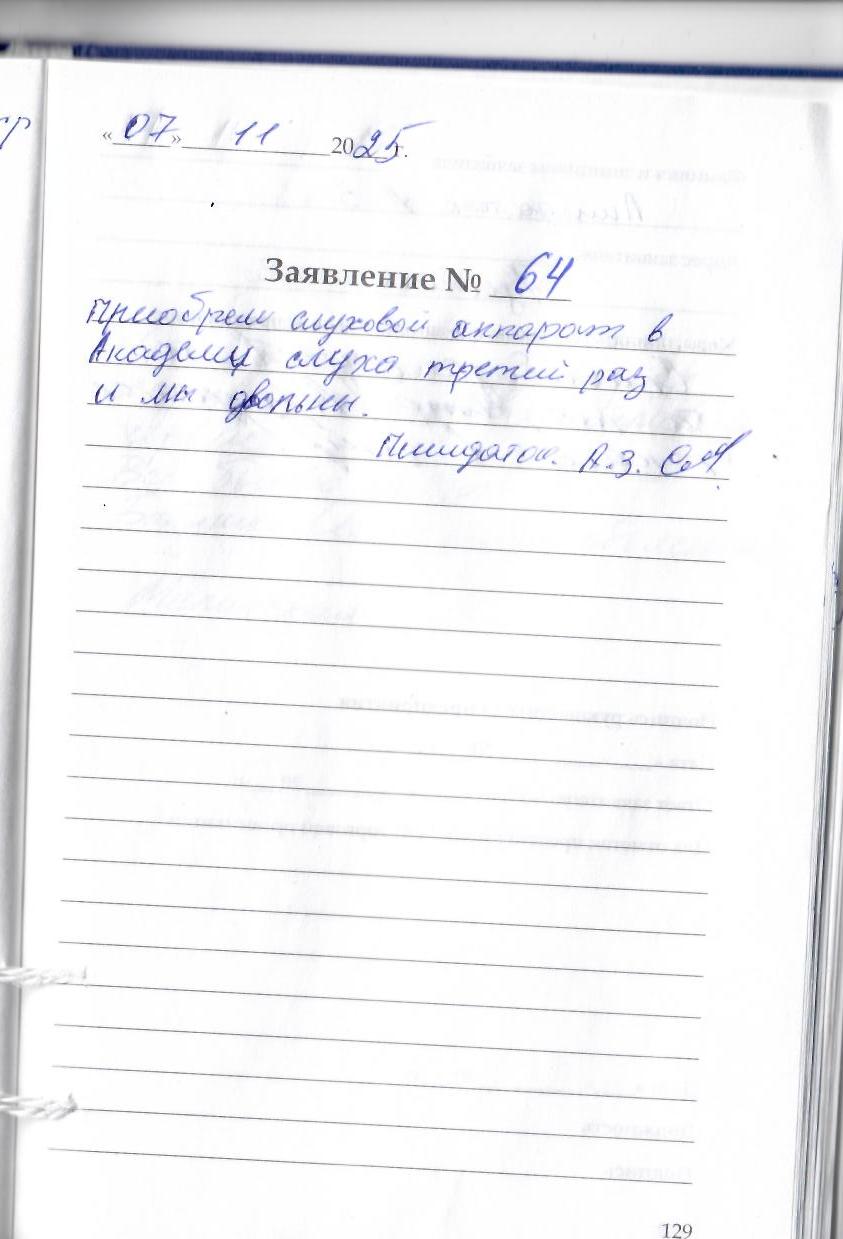 «07» 11 2025г.
Заявление № 64
Приобрели слуховой аппарат в
Академи слуха третий раз
и мы двольны.
А.З.
129